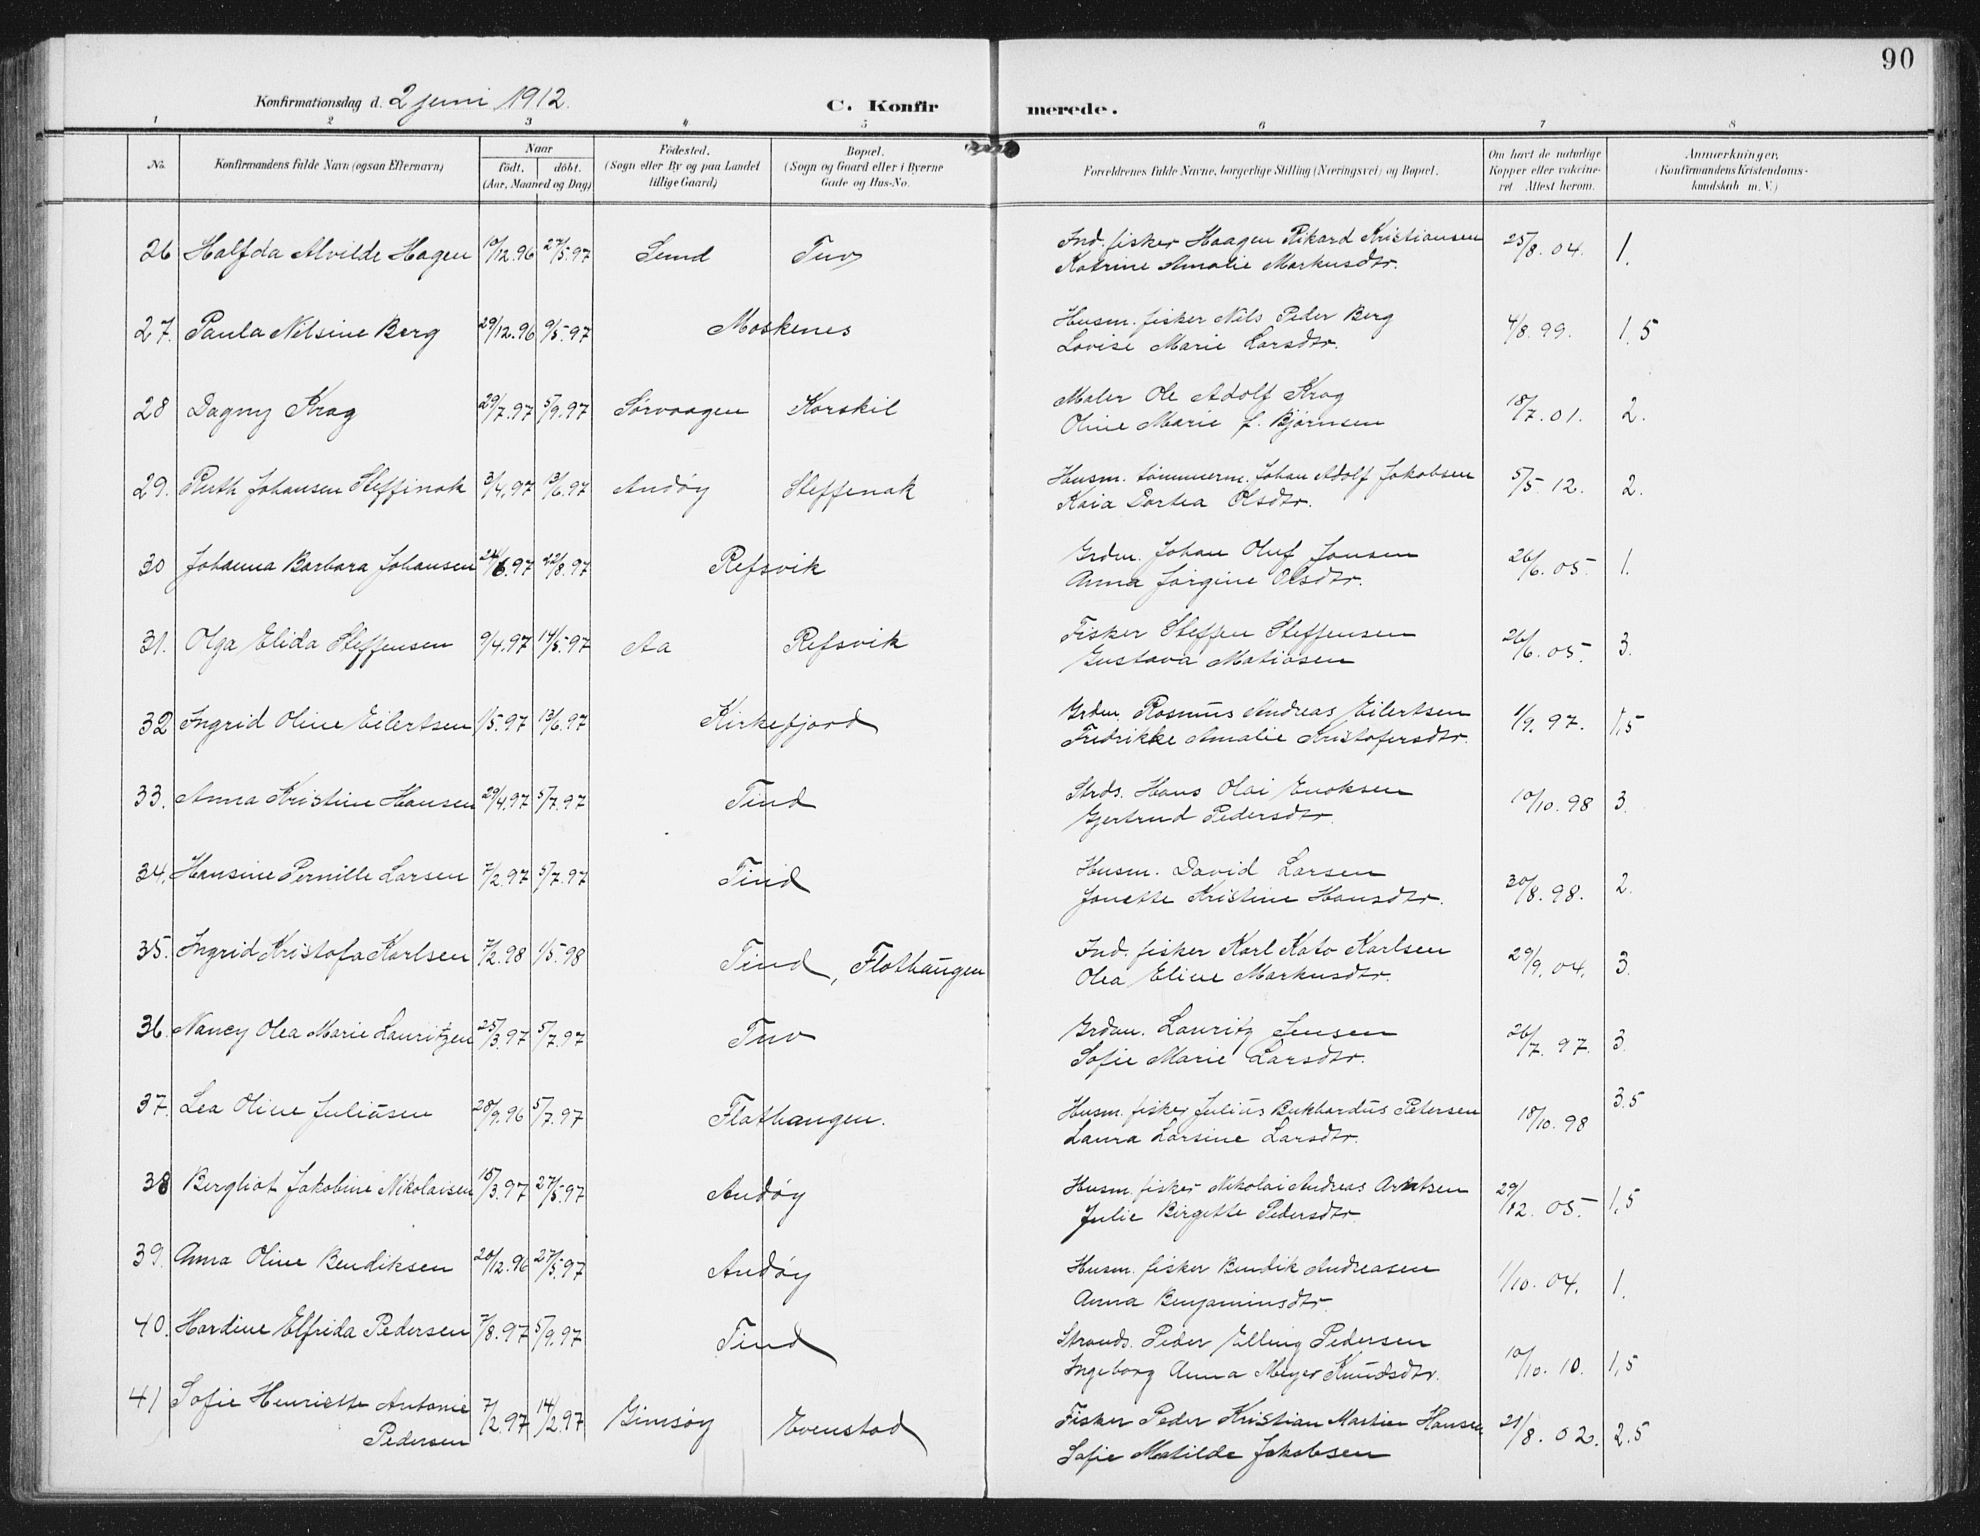 90
Konfirmationsdag d. 2 juni 1912.
C. Konfirmerede.
1 2 3 4 5 6 7 8
No. Konfirmandens fulde Navn (ogsaa Efternavn) Naar födt. döbt. (Aar, Maaned og Dag) Födested. (Sogn eller By og paa Landet tillige Gaard) Bopæl. (Sogn og Gaard eller i Byerne Gade og Hus-No. Forældrenes fulde Navne, borgerlige Stilling (Næringsvei) og Bopæl. Om havt de naturlige Kopper eller vakcineret Attest herom. Anmærkninger. (Konfirmandens Kristendomskundskab m. V.)
26 Halfda Alvilde Hagen 10/12.96 27/5.97 Sund Tuv Ind. fisker Haagen Rikard Kristiansen 25/8. 04. 1.
Katrine Amalie Markusdtr.
27. Paula Nilsine Berg 29/12.96 9/5.97 Moskenes Husm. fisker Nils Peder Berg 4/8. 99. 1,5
Lovise Marie Larsdtr.
28 Dagny Krog 29/7.97 5/9.97 Sørvaagen Korskil Maler Ole Adolf Krog 18/7. 01. 2.
Oline Marie f. Bjørnsen
29. Ruth Johansen Steffinak 3/4.97 13/6.97 Andøy Steffenak Husm. tømmerm. Johan Adolf Jakobsen 5/5 12. 2.
Kaia Dortea Olsdtr.
30 Johanna Barbara Johansen 24/6.97 22/8.97 Refsvik Grdm. Johan Oluf Jonsen 26/6. 05. 1.
Anna Jørgine Olsdtr.
31. Olga Elida Steffensen 9/4.97 14/5.97 Aa Refsvik Fisker Steffen Steffensen 26/6. 05. 3.
Gustava Matiasen
32 Ingrid Oline Eilertsen 1/5.97 13/6.97 Kirkefjord Grdm. Rasmus Andreas Eilertsen 1/9. 97. 1,5
Fredrikke Amalie Kristofersdtr.
33. Anna Kristine Hansen 29/4.97 5/7.97 Tind Strds. Hans Olai Enoksen 10/10. 98 3.
Gjertrud Pedersdtr.
34. Hansine Pernille Larsen 7/2.97 5/7.97 Tind Husm. David Larsen 30/8. 98. 2.
Jonette Kristine Hansdtr.
35. Ingrid Kristofa Karlsen 7/2.98 1/5.98 Tind, Flathaugen Ind. fisker Karl Kato Karlsen 29/9. 04. 3.
Olea Eline Markusdtr.
36. Nancy Olea Marie Lauritzen 25/3.97 5/7.97 Tuv Grdm. Lauritz Jensen 26/7. 97. 3.
Sofie Marie Larsdtr.
37. Lea Oline Juliusen 28/9.96 5/7.97 Flathaugen. Husm. fisker Julius Bukhardus Petersen 18/10. 98 3.5
Laura Larsine Larsdtr.
38 Bergliot Jakobine Nikolaisen 15/3.97 27/5.97 Andøy Husm. fisker Nikolai Andreas Arntsen 29/12. 05. 1,5
Julie Birgitte Pedersdtr.
39. Anna Oline Bendiksen 20/12.96 27/5.97 Andøy Husm. fisker Bendik Andreasen 1/10. 04. 1.
Anna Benjaminsdtr.
40. Hardine Elfrida Pedersen 7/8.97 5/9.97 Tind Strands. Peder Elling Pedersen 10/10. 10. 1,5
Ingeborg Anna Meyer Knudsdtr.
41 Sofie Henriette Antonie 7/2.97 14/2.97 Gimsøy Evenstad Fisker Peder Kristian Martin Hansen 21/8. 02. 2.5
Pedersen Sofie Matilde Jakobsen